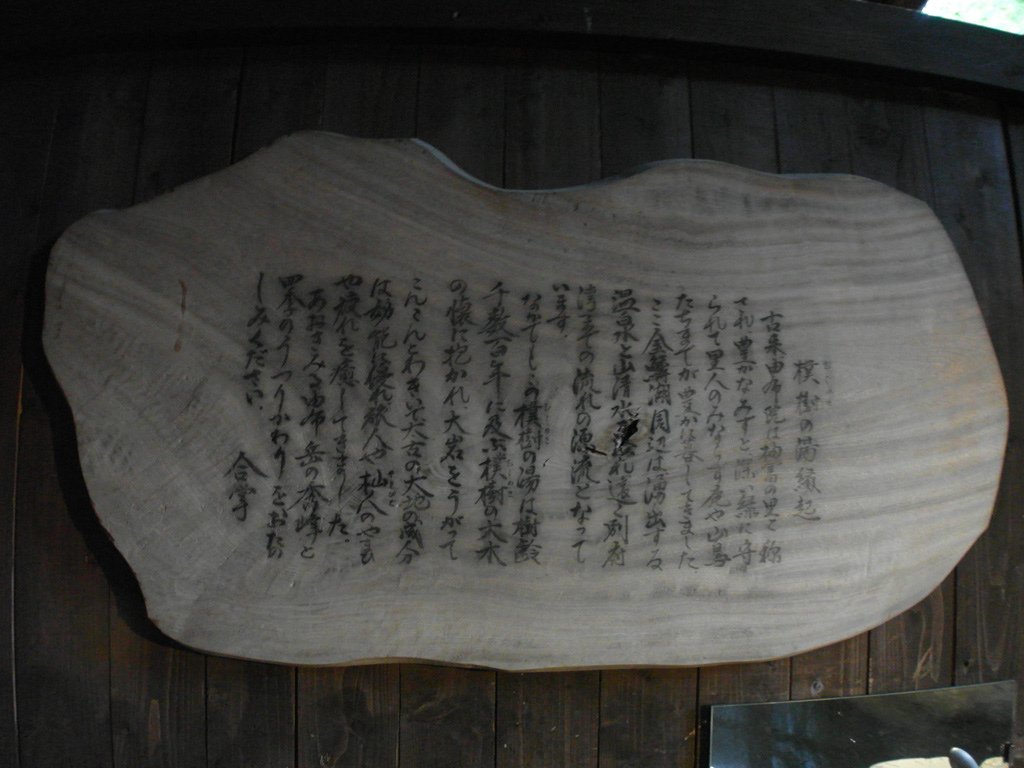 樸樹の湯縁起
古来由布院は柚富の里と称
され豊かなみずと深い緑に守
られて里人のみならず鹿や山鳥
たちまでが豊かな暮してきました
ここ金鱗湖周辺は湧出する
温泉水と山清水が流れ遠く別府
湾までの流れの源流となって
います。
なかでもこの樸樹の湯は樹齢
千数百年に及ぶ樸樹の大木
の懐に抱かれ、大岩をうがって
こんこんとわきいで太古の大地の成分
は効能に優れ旅人や杣人のやまい
や疲れを癒してきました。
あおぎみる由布岳の春の峰と
四季のうつりかわりをおたの
しみください。
合掌